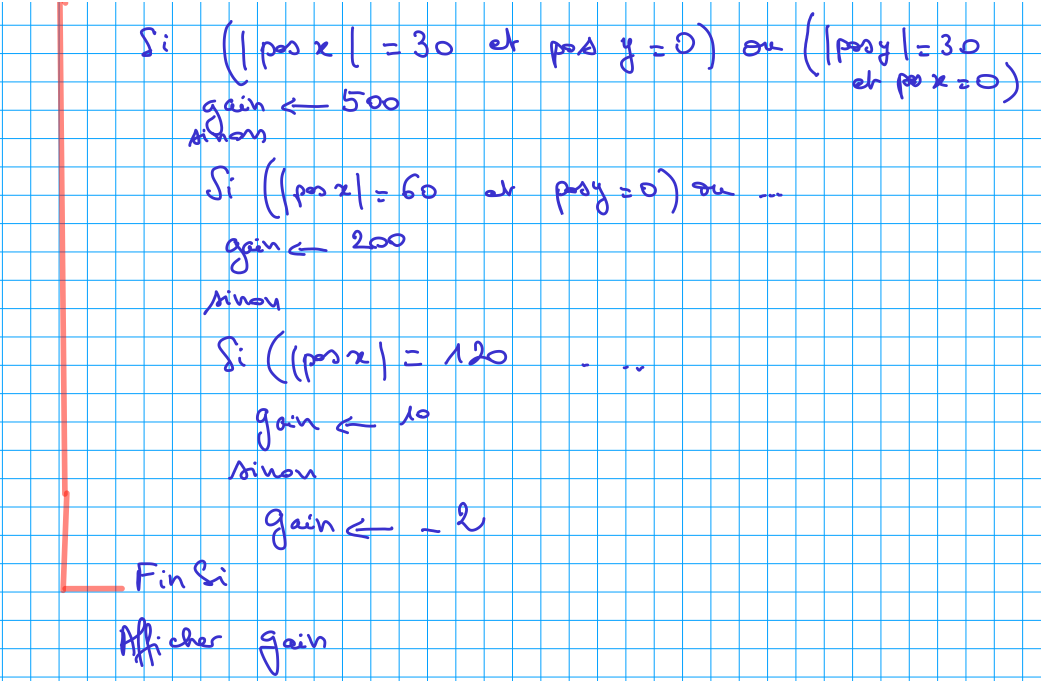 Si (|pos x| = 30 et pos y = 0) ou (|pos y| = 30
et pos x = 0)
gain ← 500
sinon
Si (|pos x| = 60 et pos y = 0) ou ...
gain ← 200
sinon
Si (|pos x| = 120 ...
gain ← 10
sinon
gain ← -2
Fin Si
Afficher gain